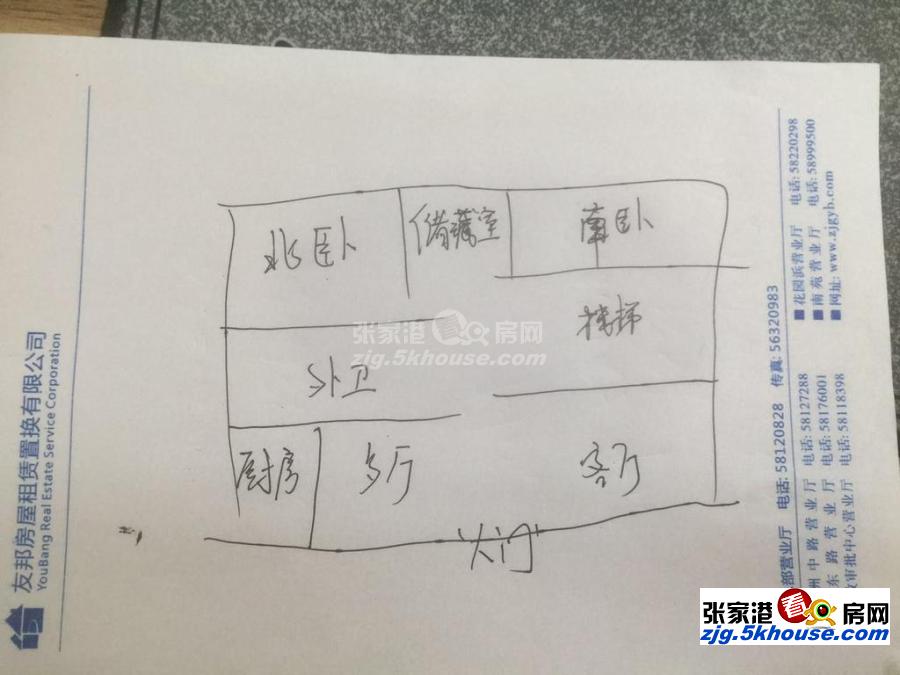 友邦房屋租赁置换有限公司
YouBang Real Estate Service Corporation
北卧
储藏室
南卧
楼梯
外卫
厨房
歺厅
客厅
大门
张家港看房网
zjg.5khouse.com
部营业厅 电话: 58120828 传真: 56320983
州中路营业厅 电话: 58127288
东路营业厅 电话: 58176001
政审批中心营业厅 电话: 58118398
■花园浜营业厅 电话: 58220298
■南苑营业厅 电话: 58999500
■网址: www.zjgyb.com
张家港看房网
zjg.5khouse.com